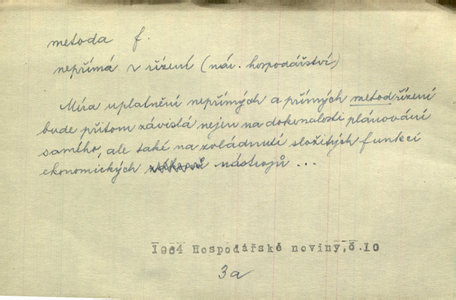 metoda f.
nepřímá v řízení (nár. hospodářství)
Míra uplatnění nepřímých a přímých metod řízení
bude přitom závislá nejen na dokonalosti plánování
samého, ale také na zvládnutí složitých funkcí
ekonomických nástrojů ...
1964 Hospodářské noviny, č.10
3a